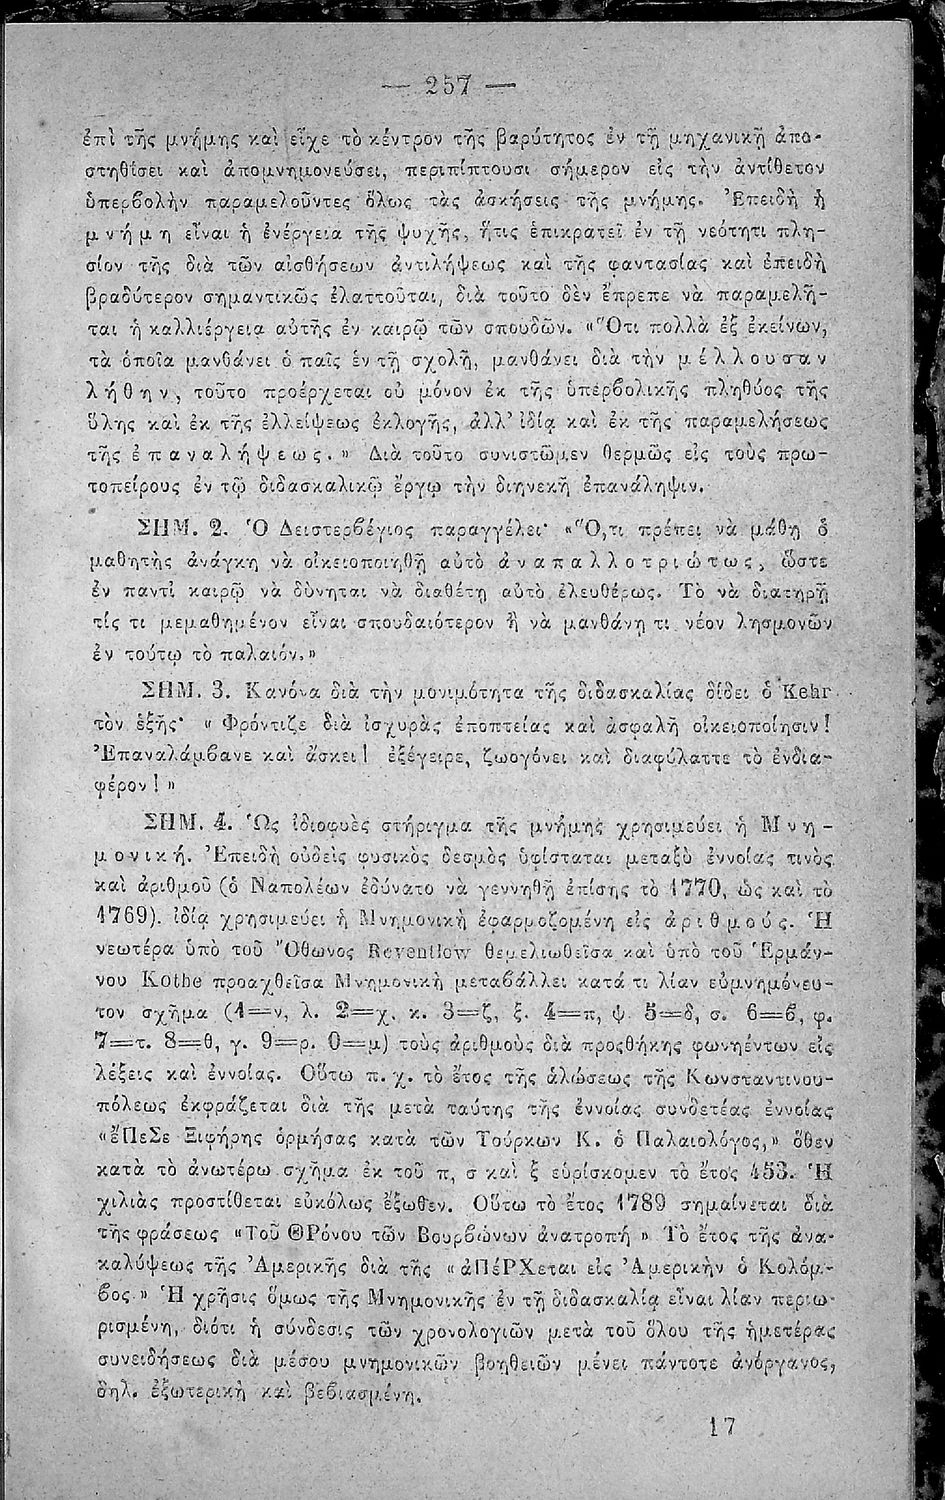 — 257 —
ἐπὶ τῆς μνήμης καὶ εἶχε τὸ κέντρον τῆς βαρύτητος ἐν τῇ μηχανικῇ ἀπο-
στηθίσει καὶ ἀπομνημονεύσει, περιπίπτουσι σήμερον εἰς τὴν ἀντίθετον
ὑπερβολὴν παραμελοῦντες ὅλως τὰς ἀσκήσεις τῆς μνήμης. Ἐπειδὴ ἡ
μνήμη εἶναι ἡ ἐνέργεια τῆς ψυχῆς, ἥτις ἐπικρατεῖ ἐν τῇ νεότητι πλη-
σίον τῆς διὰ τῶν αἰσθήσεων ἀντιλήψεως καὶ τῆς φαντασίας καὶ ἐπειδὴ
βραδύτερον σημαντικῶς ἐλαττοῦται, διὰ τοῦτο δὲν ἔπρεπε νὰ παραμελῆ-
ται ἡ καλλιέργεια αὐτῆς ἐν καιρῷ τῶν σπουδῶν. «Ὅτι πολλὰ ἐξ ἐκείνων,
τὰ ὁποῖα μανθάνει ὁ παῖς ἐν τῇ σχολῇ, μανθάνει διὰ τὴν μέλλουσαν
λήθην, τοῦτο προέρχεται οὐ μόνον ἐκ τῆς ὑπερβολικῆς πληθύος τῆς
ὕλης καὶ ἐκ τῆς ἐλλείψεως ἐκλογῆς, ἀλλ' ἰδίᾳ καὶ ἐκ τῆς παραμελήσεως
τῆς ἐπαναλήψεως.» Διὰ τοῦτο συνιστῶμεν θερμῶς εἰς τοὺς πρω-
τοπείρους ἐν τῷ διδασκαλικῷ ἔργῳ τὴν διηνεκῆ ἐπανάληψιν.
ΣΗΜ. 2. Ὁ Δειστερβέγιος παραγγέλει· «Ὅ,τι πρέπει νὰ μάθῃ ὁ
μαθητὴς ἀνάγκη νὰ οἰκειοποιηθῇ αὐτὸ ἀναπαλλοτριώτως, ὥστε
ἐν παντὶ καιρῷ νὰ δύνηται νὰ διαθέτῃ αὐτὸ ἐλευθέρως. Τὸ νὰ διατηρῇ
τίς τι μεμαθημένον εἶναι σπουδαιότερον ἢ νὰ μανθάνῃ τι νέον λησμονῶν
ἐν τούτῳ τὸ παλαιόν.»
ΣΗΜ. 3. Κανόνα διὰ τὴν μονιμότητα τῆς διδασκαλίας δίδει ὁ Kehr
τὸν ἑξῆς· «Φρόντιζε διὰ ἰσχυρὰς ἐποπτείας καὶ ἀσφαλῆ οἰκειοποίησιν!
Ἐπαναλάμβανε καὶ ἄσκει! ἐξέγειρε, ζωογόνει καὶ διαφύλαττε τὸ ἐνδια-
φέρον!»
ΣΗΜ. 4. Ὡς ἰδιοφυὲς στήριγμα τῆς μνήμης χρησιμεύει ἡ Μνη-
μονική. Ἐπειδὴ οὐδεὶς φυσικὸς δεσμὸς ὑφίσταται μεταξὺ ἐννοίας τινὸς
καὶ ἀριθμοῦ (ὁ Ναπολέων ἐδύνατο νὰ γεννηθῇ ἐπίσης τὸ 1770, ὡς καὶ τὸ
1769). ἰδίᾳ χρησιμεύει ἡ Μνημονικὴ ἐφαρμοζομένη εἰς ἀριθμούς. Ἡ
νεωτέρα ὑπὸ τοῦ Ὄθωνος Reventlow θεμελιωθεῖσα καὶ ὑπὸ τοῦ Ἑρμάν-
νου Kothe προαχθεῖσα Μνημονικὴ μεταβάλλει κατά τι λίαν εὐμνημόνευ-
τον σχῆμα (1=ν, λ. 2=χ. κ. 3=ζ, ξ. 4=π, ψ 5=δ, σ. 6=β, φ.
7=τ. 8=θ, γ. 9=ρ. 0=μ) τοὺς ἀριθμοὺς διὰ προςθήκης φωνηέντων εἰς
λέξεις καὶ ἐννοίας. Οὕτω π. χ. τὸ ἔτος τῆς ἁλώσεως τῆς Κωνσταντινου-
πόλεως ἐκφράζεται διὰ τῆς μετὰ ταύτης τῆς ἐννοίας συνδετέας ἐννοίας
«ἔΠεΣε Ξιφήρης ὁρμήσας κατὰ τῶν Τούρκων Κ. ὁ Παλαιολόγος,» ὅθεν
κατὰ τὸ ἀνωτέρω σχῆμα ἐκ τοῦ π, σ καὶ ξ εὑρίσκομεν τὸ ἔτος 453. Ἡ
χιλιὰς προστίθεται εὐκόλως ἔξωθεν. Οὕτω τὸ ἔτος 1789 σημαίνεται διὰ
τῆς φράσεως «Τοῦ ΘΡόνου τῶν Βουρβώνων ἀνατροπή» Τὸ ἔτος τῆς ἀνα-
καλύψεως τῆς Ἀμερικῆς διὰ τῆς «ἀΠέΡΧεται εἰς Ἀμερικὴν ὁ Κολόμ-
βος.» Ἡ χρῆσις ὅμως τῆς Μνημονικῆς ἐν τῇ διδασκαλίᾳ εἶναι λίαν περιω-
ρισμένη, διότι ἡ σύνδεσις τῶν χρονολογιῶν μετὰ τοῦ ὅλου τῆς ἡμετέρας
συνειδήσεως διὰ μέσου μνημονικῶν βοηθειῶν μένει πάντοτε ἀνόργανος,
δηλ. ἐξωτερικὴ καὶ βεβιασμένη.
17